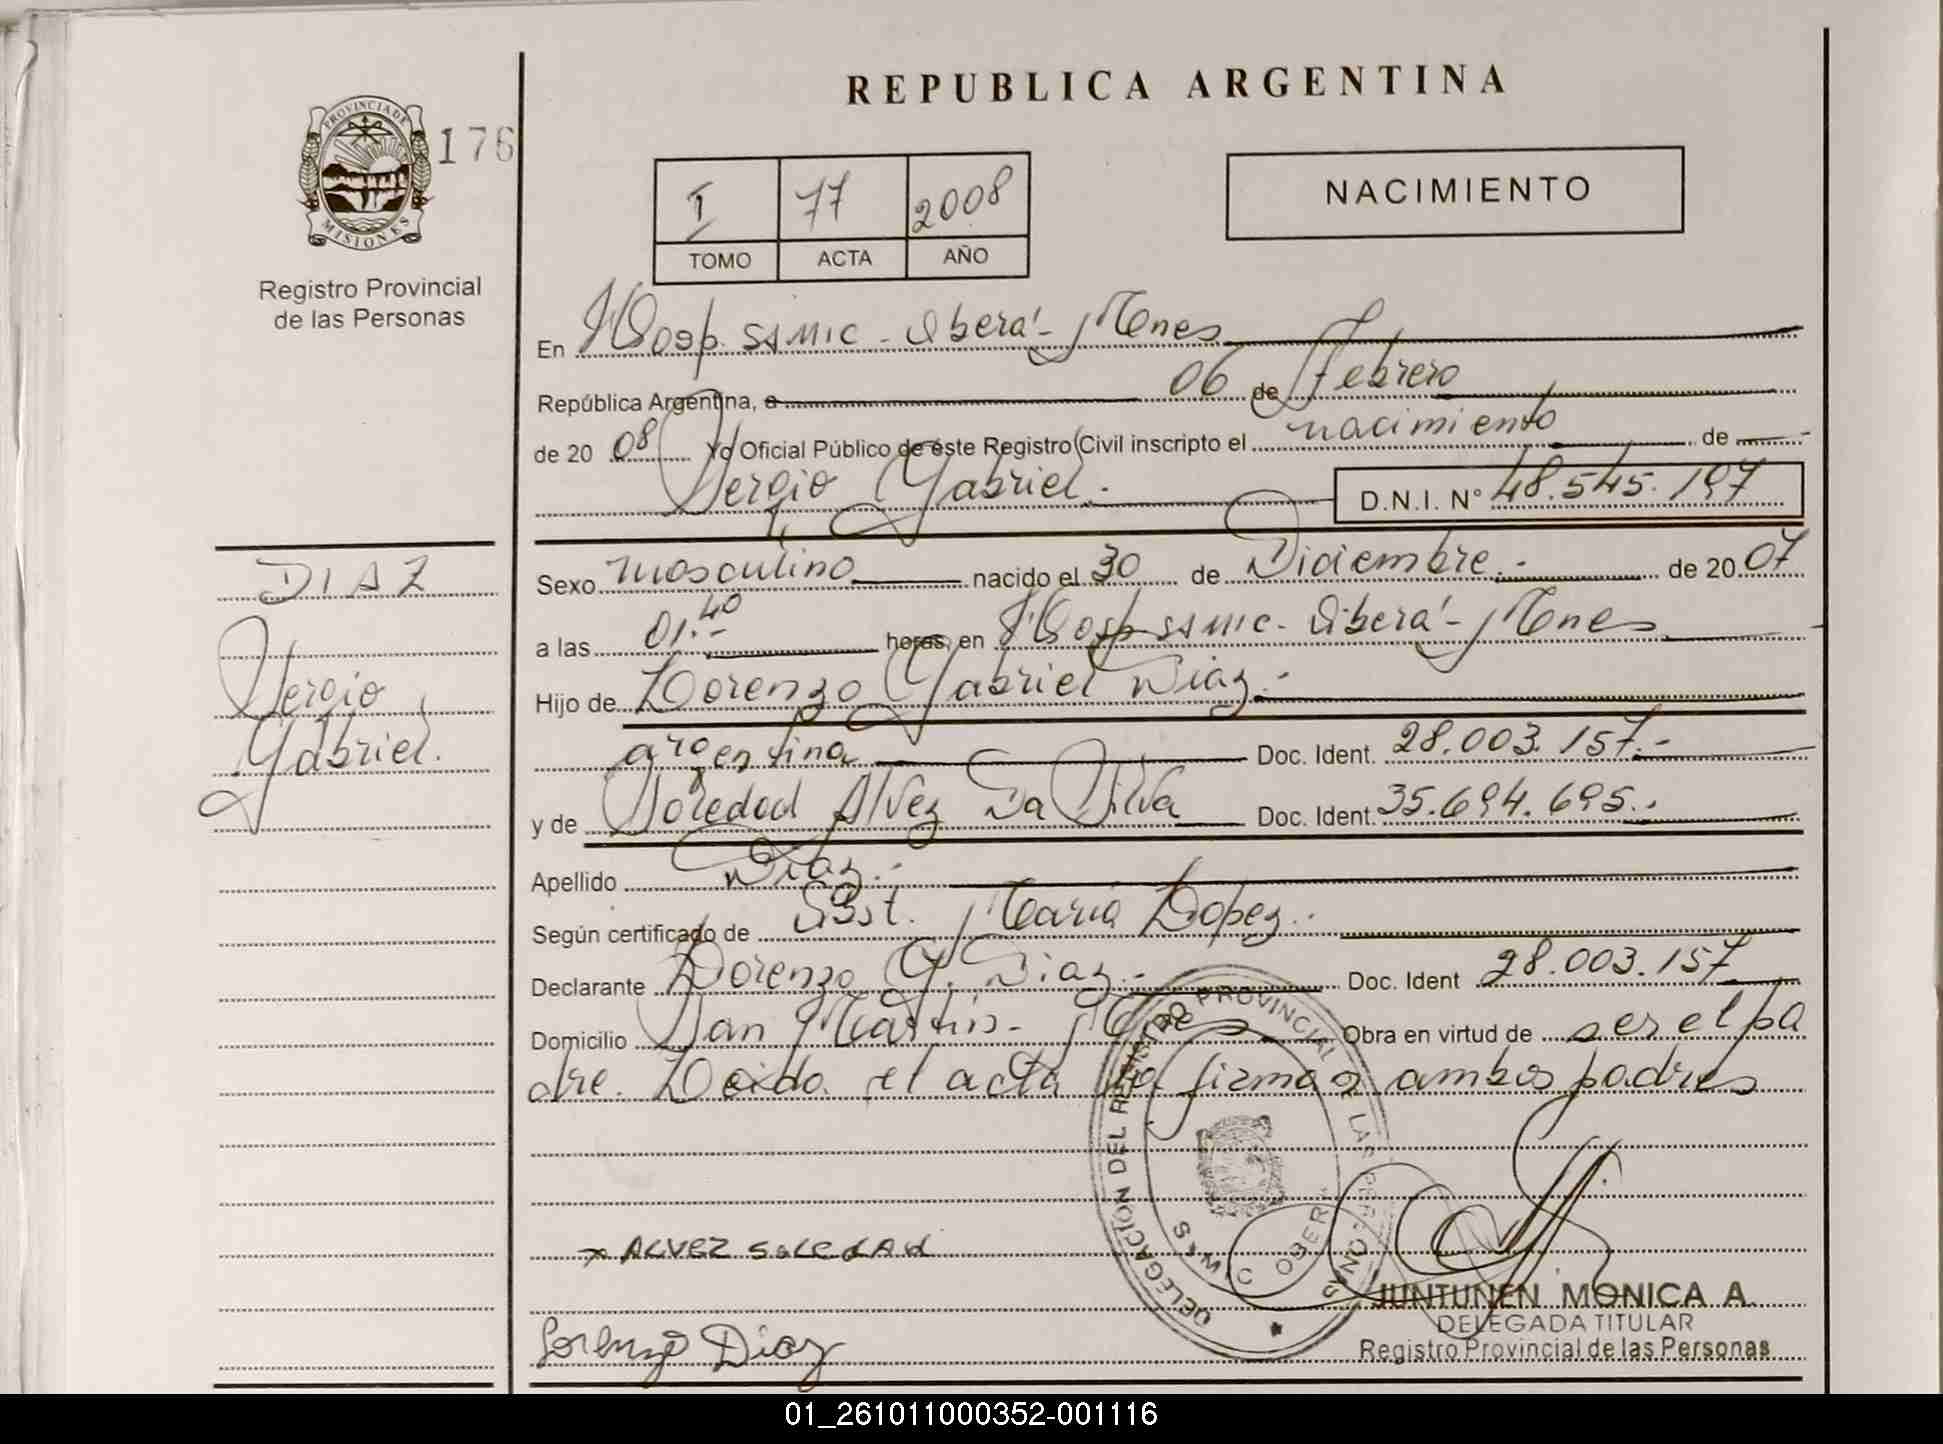 REPUBLICA ARGENTINA
PROVINCIA DE
MISIONES
176
Registro Provincial
de las Personas
I 77 2008
TOMO ACTA AÑO
NACIMIENTO
En Hosp. SAMIC - Oberá - Mnes
República Argentina, a 06 de Febrero
de 20 08 Yo Oficial Público de este Registro Civil inscripto el nacimiento de
Sergio Gabriel.- D.N.I. N° 48.545.197
DIAZ
Sergio
Gabriel.
Sexo masculino nacido el 30 de Diciembre.- de 20 07
a las 01.40 horas, en Hosp SAMIC - Oberá - Mnes
Hijo de Lorenzo Gabriel Diaz.-
argentina Doc. Ident. 28.003.157.-
y de Soledad Alvez Da Silva Doc. Ident. 35.694.695.-
Apellido Diaz.-
Según certificado de Obst. Maria Lopez.
Declarante Lorenzo G. Diaz.- Doc. Ident 28.003.157
Domicilio San Martin - Mnes Obra en virtud de ser el pa
dre. Leida el acta la firman ambos padres
x ALVEZ SOLEDAD
Lorenzo Diaz
DELEGACION DEL REGISTRO PROVINCIAL DE LAS PERSONAS
OBERA
JUNTUNEN MONICA A.
DELEGADA TITULAR
Registro Provincial de las Personas
01_261011000352-001116